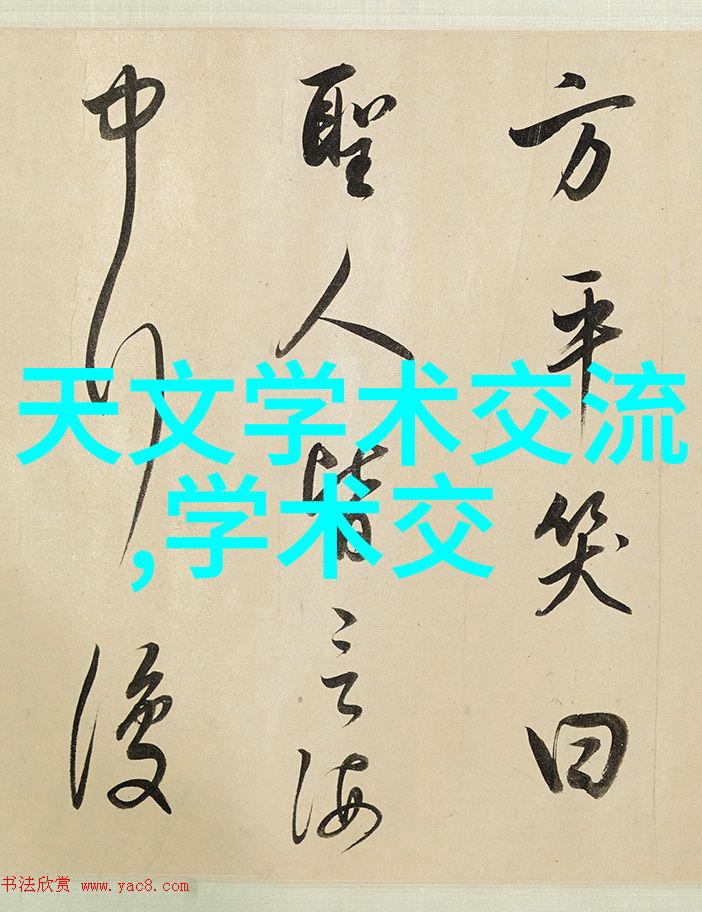 方平笑曰
聖人皆言海
中行復
天文学术交流
,学术交
书法欣赏 www.yac8.com